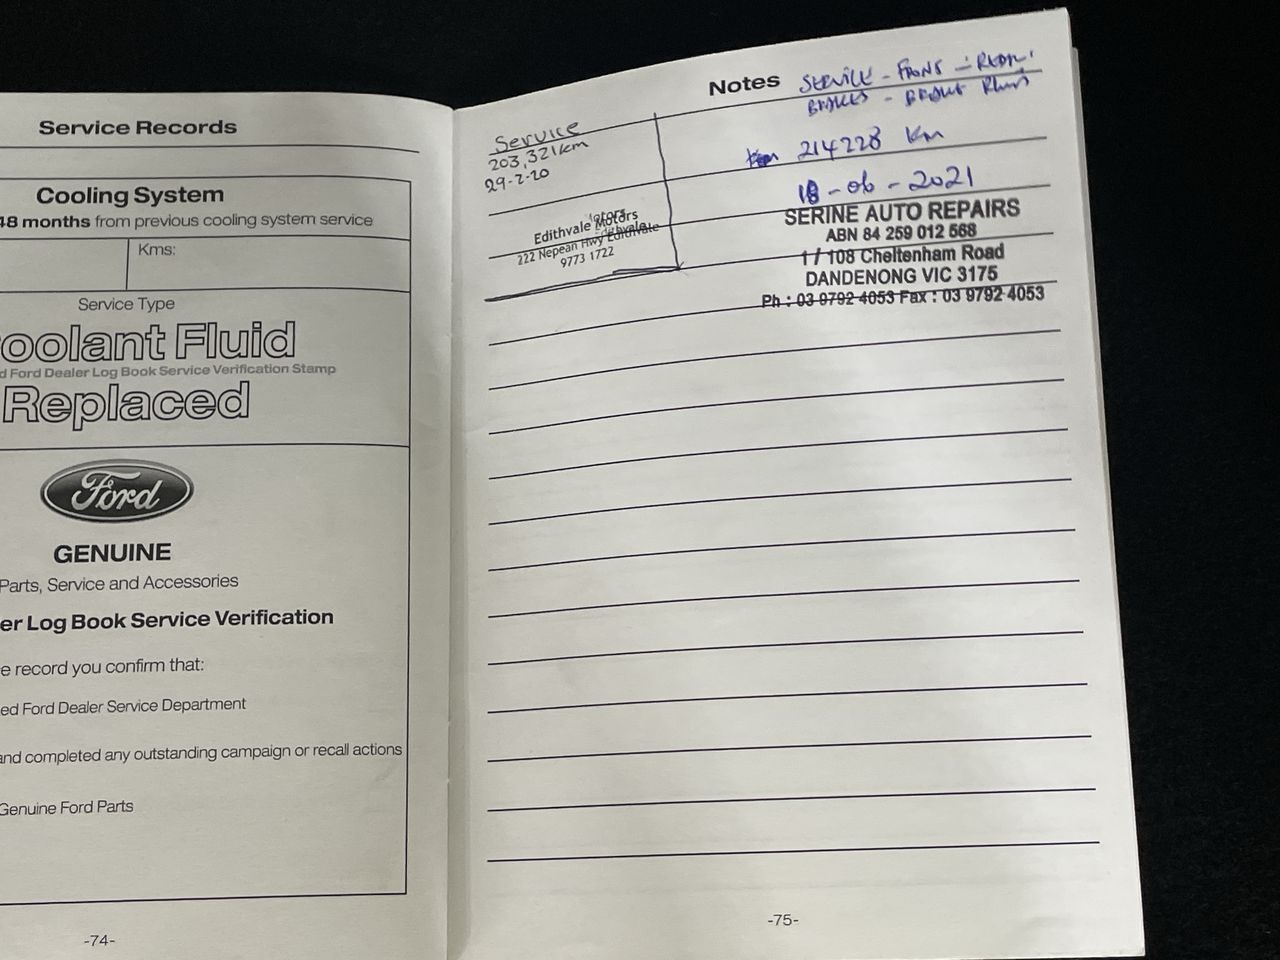 Service Records
Cooling System
48 months from previous cooling system service
Kms:
Service Type
oolant Fluid
d Ford Dealer Log Book Service Verification Stamp
Replaced
Ford
GENUINE
Parts, Service and Accessories
er Log Book Service Verification
e record you confirm that:
ed Ford Dealer Service Department
and completed any outstanding campaign or recall actions
Genuine Ford Parts
-74-
Notes
Service
203,321km
29-2-20
Edithvale Motors
222 Nepean Hwy Edithvale
9773 1722
SERVICE - FRONT -
BRAKES -
214228 Km
18-06-2021
SERINE AUTO REPAIRS
ABN 84 259 012 568
1 / 108 Cheltenham Road
DANDENONG VIC 3175
Ph : 03 9792 4053 Fax : 03 9792 4053
-75-